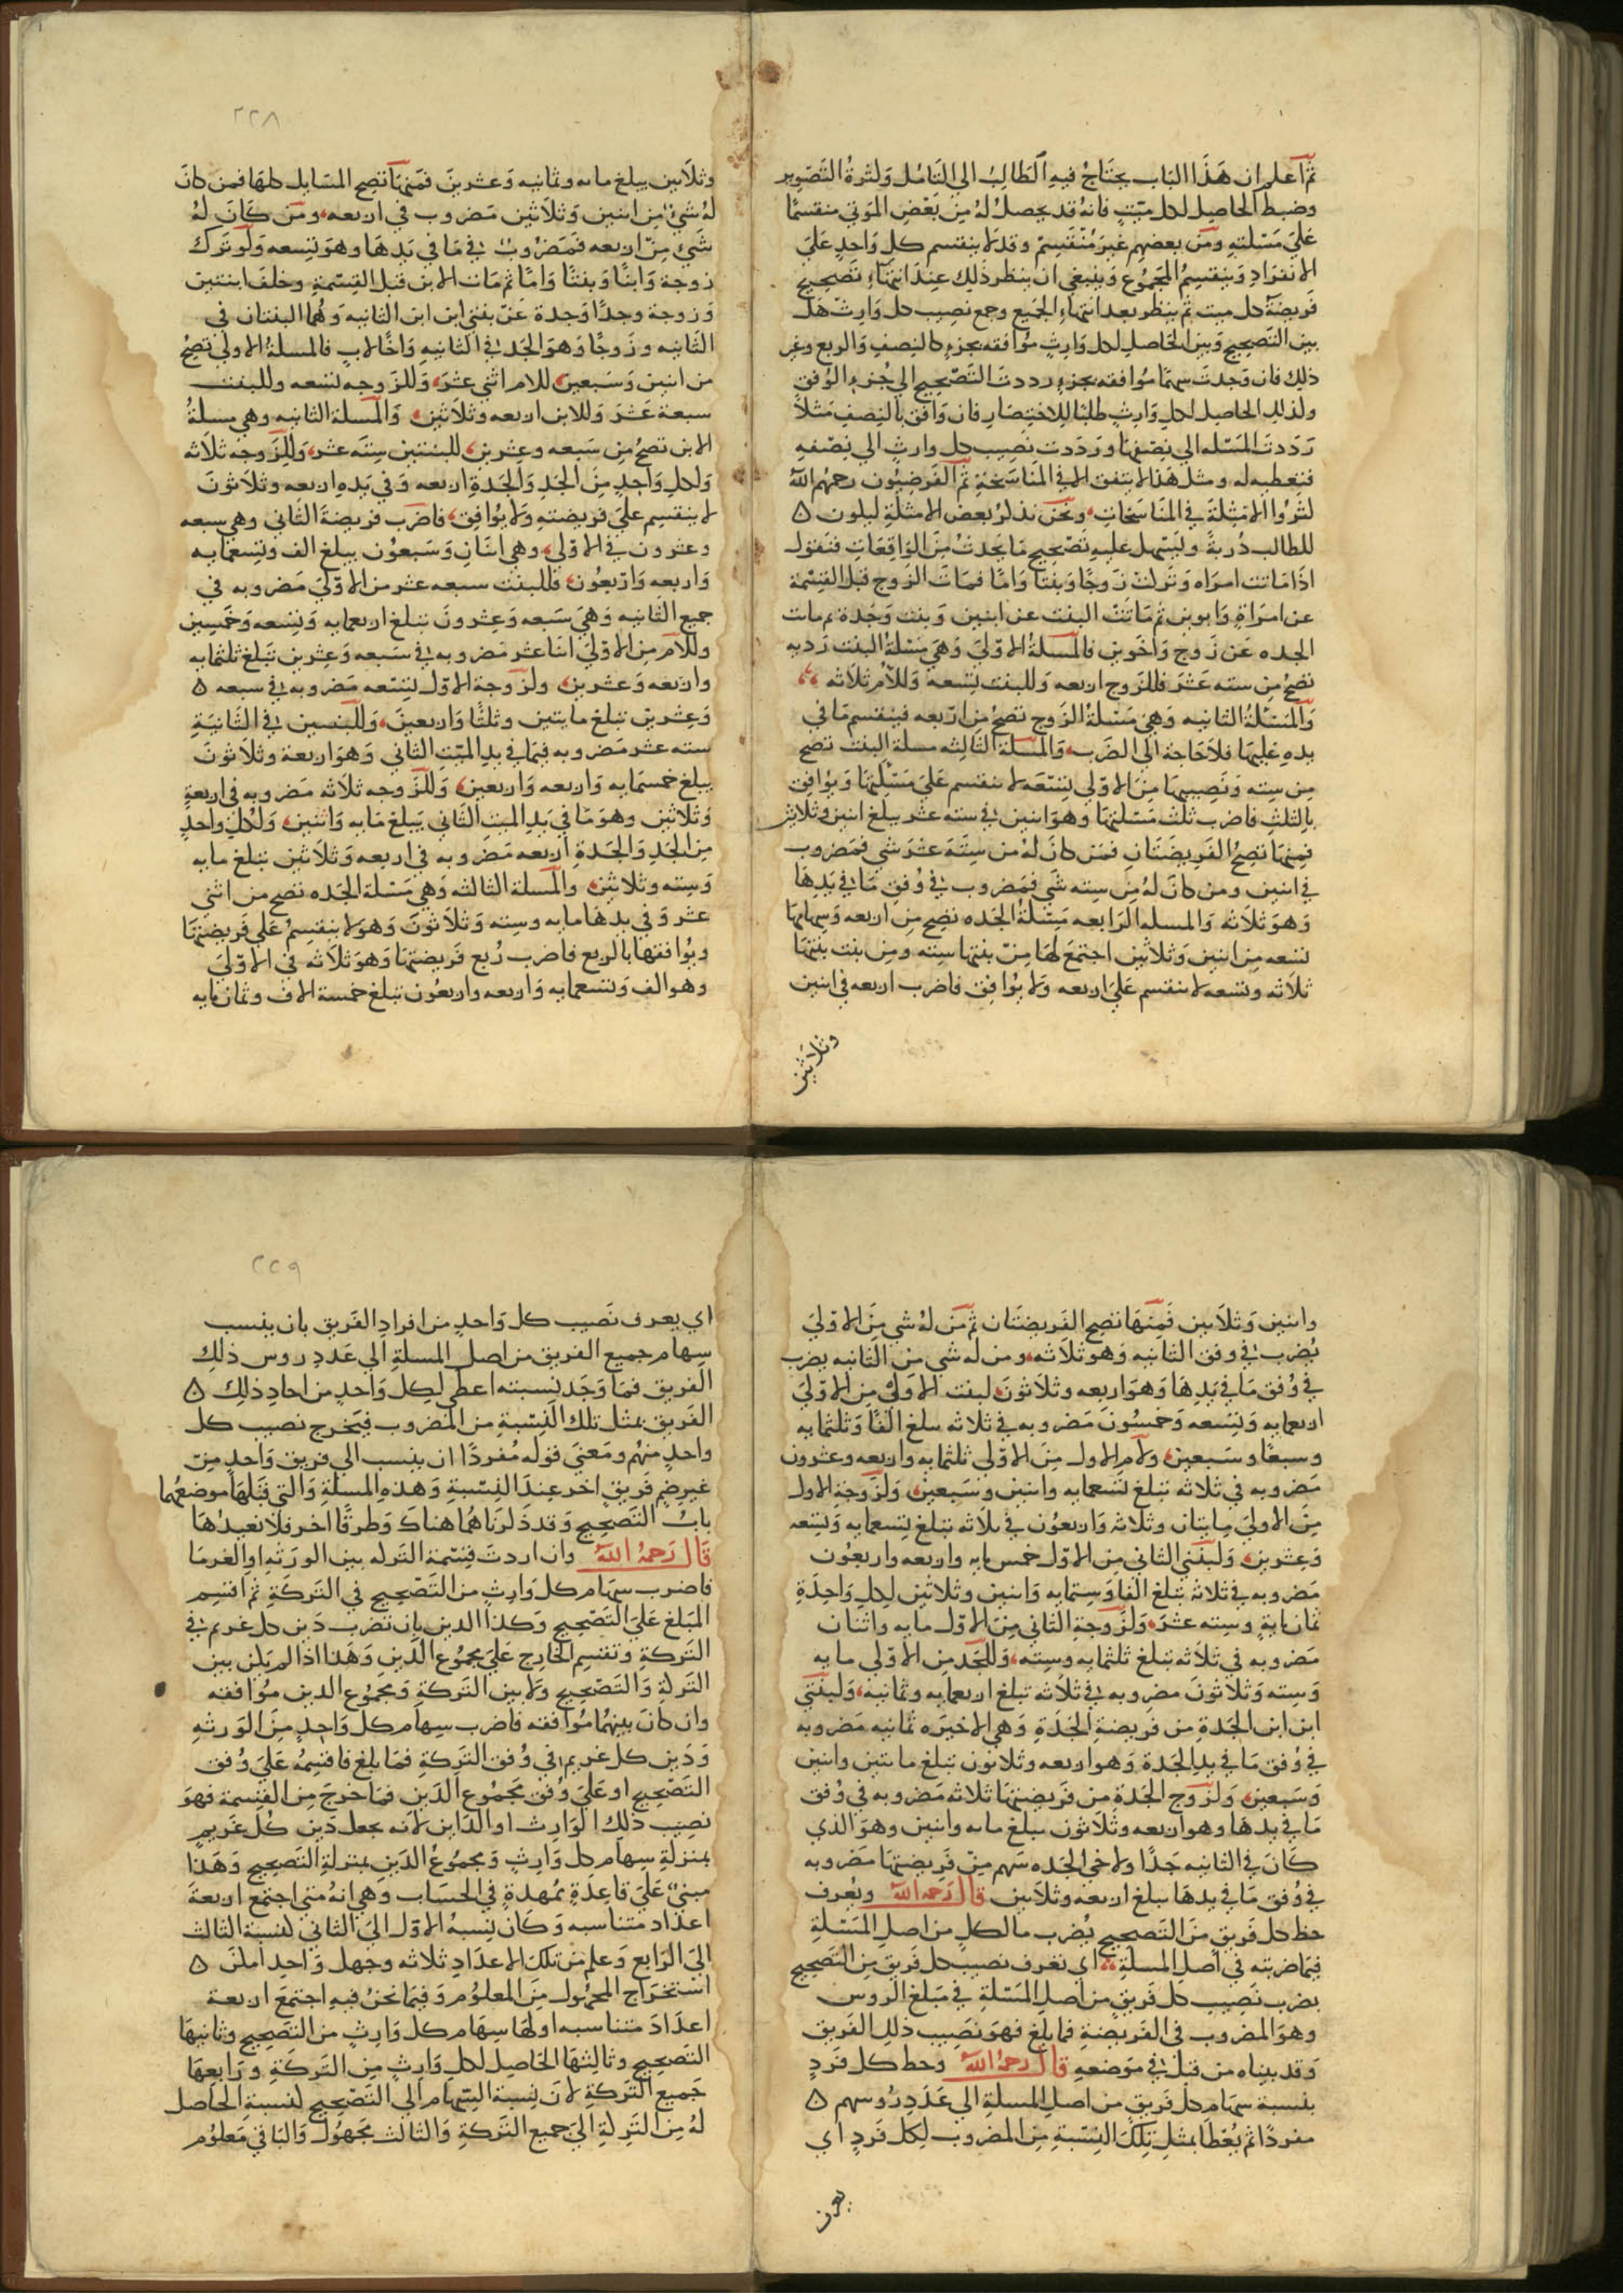 ثم اعلم ان هذا الباب يحتاج فيه الطالب الي التامل وكثرة التصوير
وضبط الحاصل لكل ميت فانه قد يحصل له من بعض الموتي منقسما
علي مسئلته ومن بعضهم غير منقسم وقد لا ينقسم كل واحد علي
الانفراد وينقسم المجموع وينبغي ان ينظر ذلك عند انتهاء تصحيح
فريضة كل ميت ثم ينظر بعد انتهاء الجميع وجمع نصيب كل وارث هل
بين التصحيح وبين الحاصل لكل وارث موافقه بجزء كالنصف والربع وغير
ذلك فان وجدت بينهما موافقه بجزء رددت التصحيح الي جزء الوفق
وكذلك الحاصل لكل وارث طلبا للاختصار فان وافق بالنصف مثلا
رددت المسئله الي نصفها ورددت نصيب كل وارث الي نصفه
فتعطيه له ومثل هذا لا يتفق الا في المناسخة ثم الفرضيون رحمهم الله
كثروا الامثلة في المناسخات ونحن نذكر بعض الامثلة ليكون ٥
للطالب دربة وليسهل عليه تصحيح ما يحدث من الواقعات فنقول
اذا ماتت امراه وتركت زوجا وبنتا واما فمات الزوج قبل القسمة
عن امراة وابوين ثم ماتت البنت عن ابنين وبنت وجدة ثم ماتت
الجده عن زوج واخوين فالمسئلة الاولي وهي مسئلة البنت رديه
تصح من سته عشر فللزوج اربعه وللبنت تسعه وللام ثلاثه
والمسئلة الثانيه وهي مسئلة الزوج تصح من اربعه فينقسم ما في
يده عليها فلا حاجة الي الضرب والمسئلة الثالثه مسئلة البنت تصح
من سته ونصيبها من الاولي تسعه لا ينقسم علي مسئلتها ويوافق
بالثلث فاضرب ثلث مسئلتها وهو اثنين في سته عشر يبلغ اثنين وثلاثين
فمنها تصح الفريضتان فمن كان له من سته عشر شي فمضروب
في اثنين ومن كان له من سته شي فمضروب في وفق ما في يدها
وهو ثلاثه والمسله الرابعه مسئلة الجده تصح من اربعه وسهامها
تسعه من اثنين وثلاثين اجتمع لها من بنتها سته ومن بنت بنتها
ثلاثه وتسعه لا ينقسم علي اربعه ولا يوافق فاضرب اربعه في اثنين
وثلاثين
٢٢٨
وثلاثين يبلغ مايه وثمانيه وعشرين فمنها تصح المسايل كلها فمن كان
له شيء من اثنين وثلاثين مضروب في اربعه ومن كان له
شي من اربعه فمضروب في ما في يدها وهو تسعه ولو ترك
زوجة وابنا وبنتا واما ثم مات الابن قبل القسمة وخلف ابنتين
وزوجة وجدا وجدة عن بنتي ابن ابن الثانيه وهما البنتان في
الثانيه وزوجا وهو الجد في الثانيه واخا لاب فالمسلة الاولي تصح
من اثنين وسبعين للام اثني عشر وللزوجه تسعه وللبنت
سبعة عشر وللابن اربعه وثلاثين والمسلة الثانيه وهي مسلة
الابن تصح من سبعه وعشرين للبنتين سته عشر وللزوجه ثلاثه
ولكل واحد من الجد والجدة اربعه وفي يده اربعه وثلاثون
لا ينقسم علي فريضته ولا يوافق فاضرب فريضة الثاني وهي سبعه
وعشرون في الاولي وهي اثنان وسبعون يبلغ الف وتسعمايه
واربعه واربعون فللبنت سبعه عشر من الاولي مضروبه في
جميع الثانيه وهي سبعه وعشرون تبلغ اربعمايه وتسعه وخمسين
وللام من الاولي اثنا عشر مضروبه في سبعه وعشرين تبلغ ثلثمايه
واربعه وعشرين ولزوجة الاول تسعه مضروبه في سبعه ٥
وعشرين تبلغ مايتين وثلثا واربعين وللبنتين في الثانية
سته عشر مضروبه فيما في يد الميت الثاني وهو اربعة وثلاثون
يبلغ خمسمايه واربعه واربعين وللزوجه ثلاثه مضروبه في اربعة
وثلاثين وهو ما في يد الميت الثاني يبلغ مايه واثنين ولكل واحد
من الجد والجدة اربعه مضروبه في اربعه وثلاثين تبلغ مايه
وسته وثلاثين والمسلة الثالثه وهي مسئلة الجده تصح من اثني
عشر وفي يدها مايه وسته وثلاثون وهو لا ينقسم علي فريضتها
ويوافقها بالربع فاضرب ربع فريضتها وهو ثلاثه في الاولي
وهو الف وتسعمايه واربعه واربعون تبلغ خمسة الاف وثمان مايه
واثنين وثلاثين فمنها تصح الفريضتان ثم من له شي من الاولي
يضرب في وفق الثانيه وهو ثلاثه ومن له شي من الثانيه يضرب
في وفق ما في يدها وهو اربعه وثلاثون لبنت الاولي من الاولي
اربعمايه وتسعه وخمسون مضروبه في ثلاثه يبلغ الفا وثلثمايه
وسبعا وسبعين ولام الاول من الاولي ثلثمايه واربعه وعشرون
مضروبه في ثلاثه تبلغ تسعمايه واثنين وسبعين ولزوجة الاول
من الاولي مايتان وثلاثه واربعون في ثلاثه تبلغ سبعمايه وتسعه
وعشرين ولبنتي الثاني من الاول خمس مايه واربعه واربعون
مضروبه في ثلاثه تبلغ الفا وستمايه واثنين وثلاثين لكل واحدة
ثمان ماية وسته عشر ولزوجة الثاني من الاول مايه واثنان
مضروبه في ثلاثه تبلغ ثلثمايه وسته وللجد من الاولي مايه
وسته وثلاثون مضروبه في ثلاثه تبلغ اربعمايه وثمانيه ولبنتي
ابن ابن الجدة من فريضة الجدة وهي الاخيره ثمانيه مضروبه
في وفق ما في يد الجدة وهو اربعه وثلاثون تبلغ مايتين واثنين
وسبعين ولزوج الجدة من فريضتها ثلاثه مضروبه في وفق
ما في يدها وهو اربعه وثلاثون يبلغ مايه واثنين وهو الذي
كان في الثانيه جدا ولاخي الجده سهم من فريضتها مضروبه
في وفق ما في يدها يبلغ اربعه وثلاثين قال رحمه الله ويعرف
حظ كل فريق من التصحيح بضرب ما لكل من اصل المسئلة
فيما ضربته في اصل المسلة اي تعرف نصيب كل فريق من التصحيح
بضرب نصيب كل فريق من اصل المسئلة في مبلغ الروس
وهو المضروب في الفريضة فما بلغ فهو نصيب ذلك الفريق
وقد بيناه من قبل في موضعه قال رحمه الله وحظ كل فرد
بنسبة سهام كل فريق من اصل المسلة الي عدد روسهم ٥
مفردا ثم يعطا بمثل تلك النسبة من المضروب لكل فرد اي
يعرف
٢٢٩
اي يعرف نصيب كل واحد من افراد الفريق بان ينسب
سهام جميع الفريق من اصل المسلة الي عدد روس ذلك
الفريق فما وجد نسبته اعطي لكل واحد من احاد ذلك ٥
الفريق بمثل تلك النسبة من المضروب فيخرج نصيب كل
واحد منهم ومعني قوله مفردا ان ينسب الي فريق واحد من
غير ضم فريق اخر عند النسبة وهذه المسلة والتي قبلها موضعهما
باب التصحيح وقد ذكرناهما هناك وطرقا اخر فلا نعيدها
قال رحمه الله وان اردت قسمة التركه بين الورثه او الغرما
فاضرب سهام كل وارث من التصحيح في التركة ثم اقسم
المبلغ علي التصحيح وكذا الدين بان تضرب دين كل غريم في
التركة وتقسم الخارج علي مجموع الدين وهذا اذا لم يكن بين
التركة والتصحيح ولا بين التركة ومجموع الدين موافقه
وان كان بينهما موافقه فاضرب سهام كل واحد من الورثه
ودين كل غريم في وفق التركة فما بلغ فاقسمه علي وفق
التصحيح او علي وفق مجموع الدين فما خرج من القسمة فهو
نصيب ذلك الوارث او الداين لانه يجعل دين كل غريم
بمنزلة سهام كل وارث ومجموع الدين بمنزلة التصحيح وهذا
مبني علي قاعدة ممهدة في الحساب وهي انه متي اجتمع اربعة
اعداد متناسبه وكان نسبة الاول الي الثاني كنسبة الثالث
الي الرابع وعلم من تلك الاعداد ثلاثه وجهل واحد امكن ٥
استخراج المجهول من المعلوم وفيما نحن فيه اجتمع اربعة
اعداد متناسبه اولها سهام كل وارث من التصحيح وثانيها
التصحيح وثالثها الحاصل لكل وارث من التركة ورابعها
جميع التركة لان نسبة السهام الي التصحيح كنسبة الحاصل
له من التركة الي جميع التركة والثالث مجهول والباقي معلوم